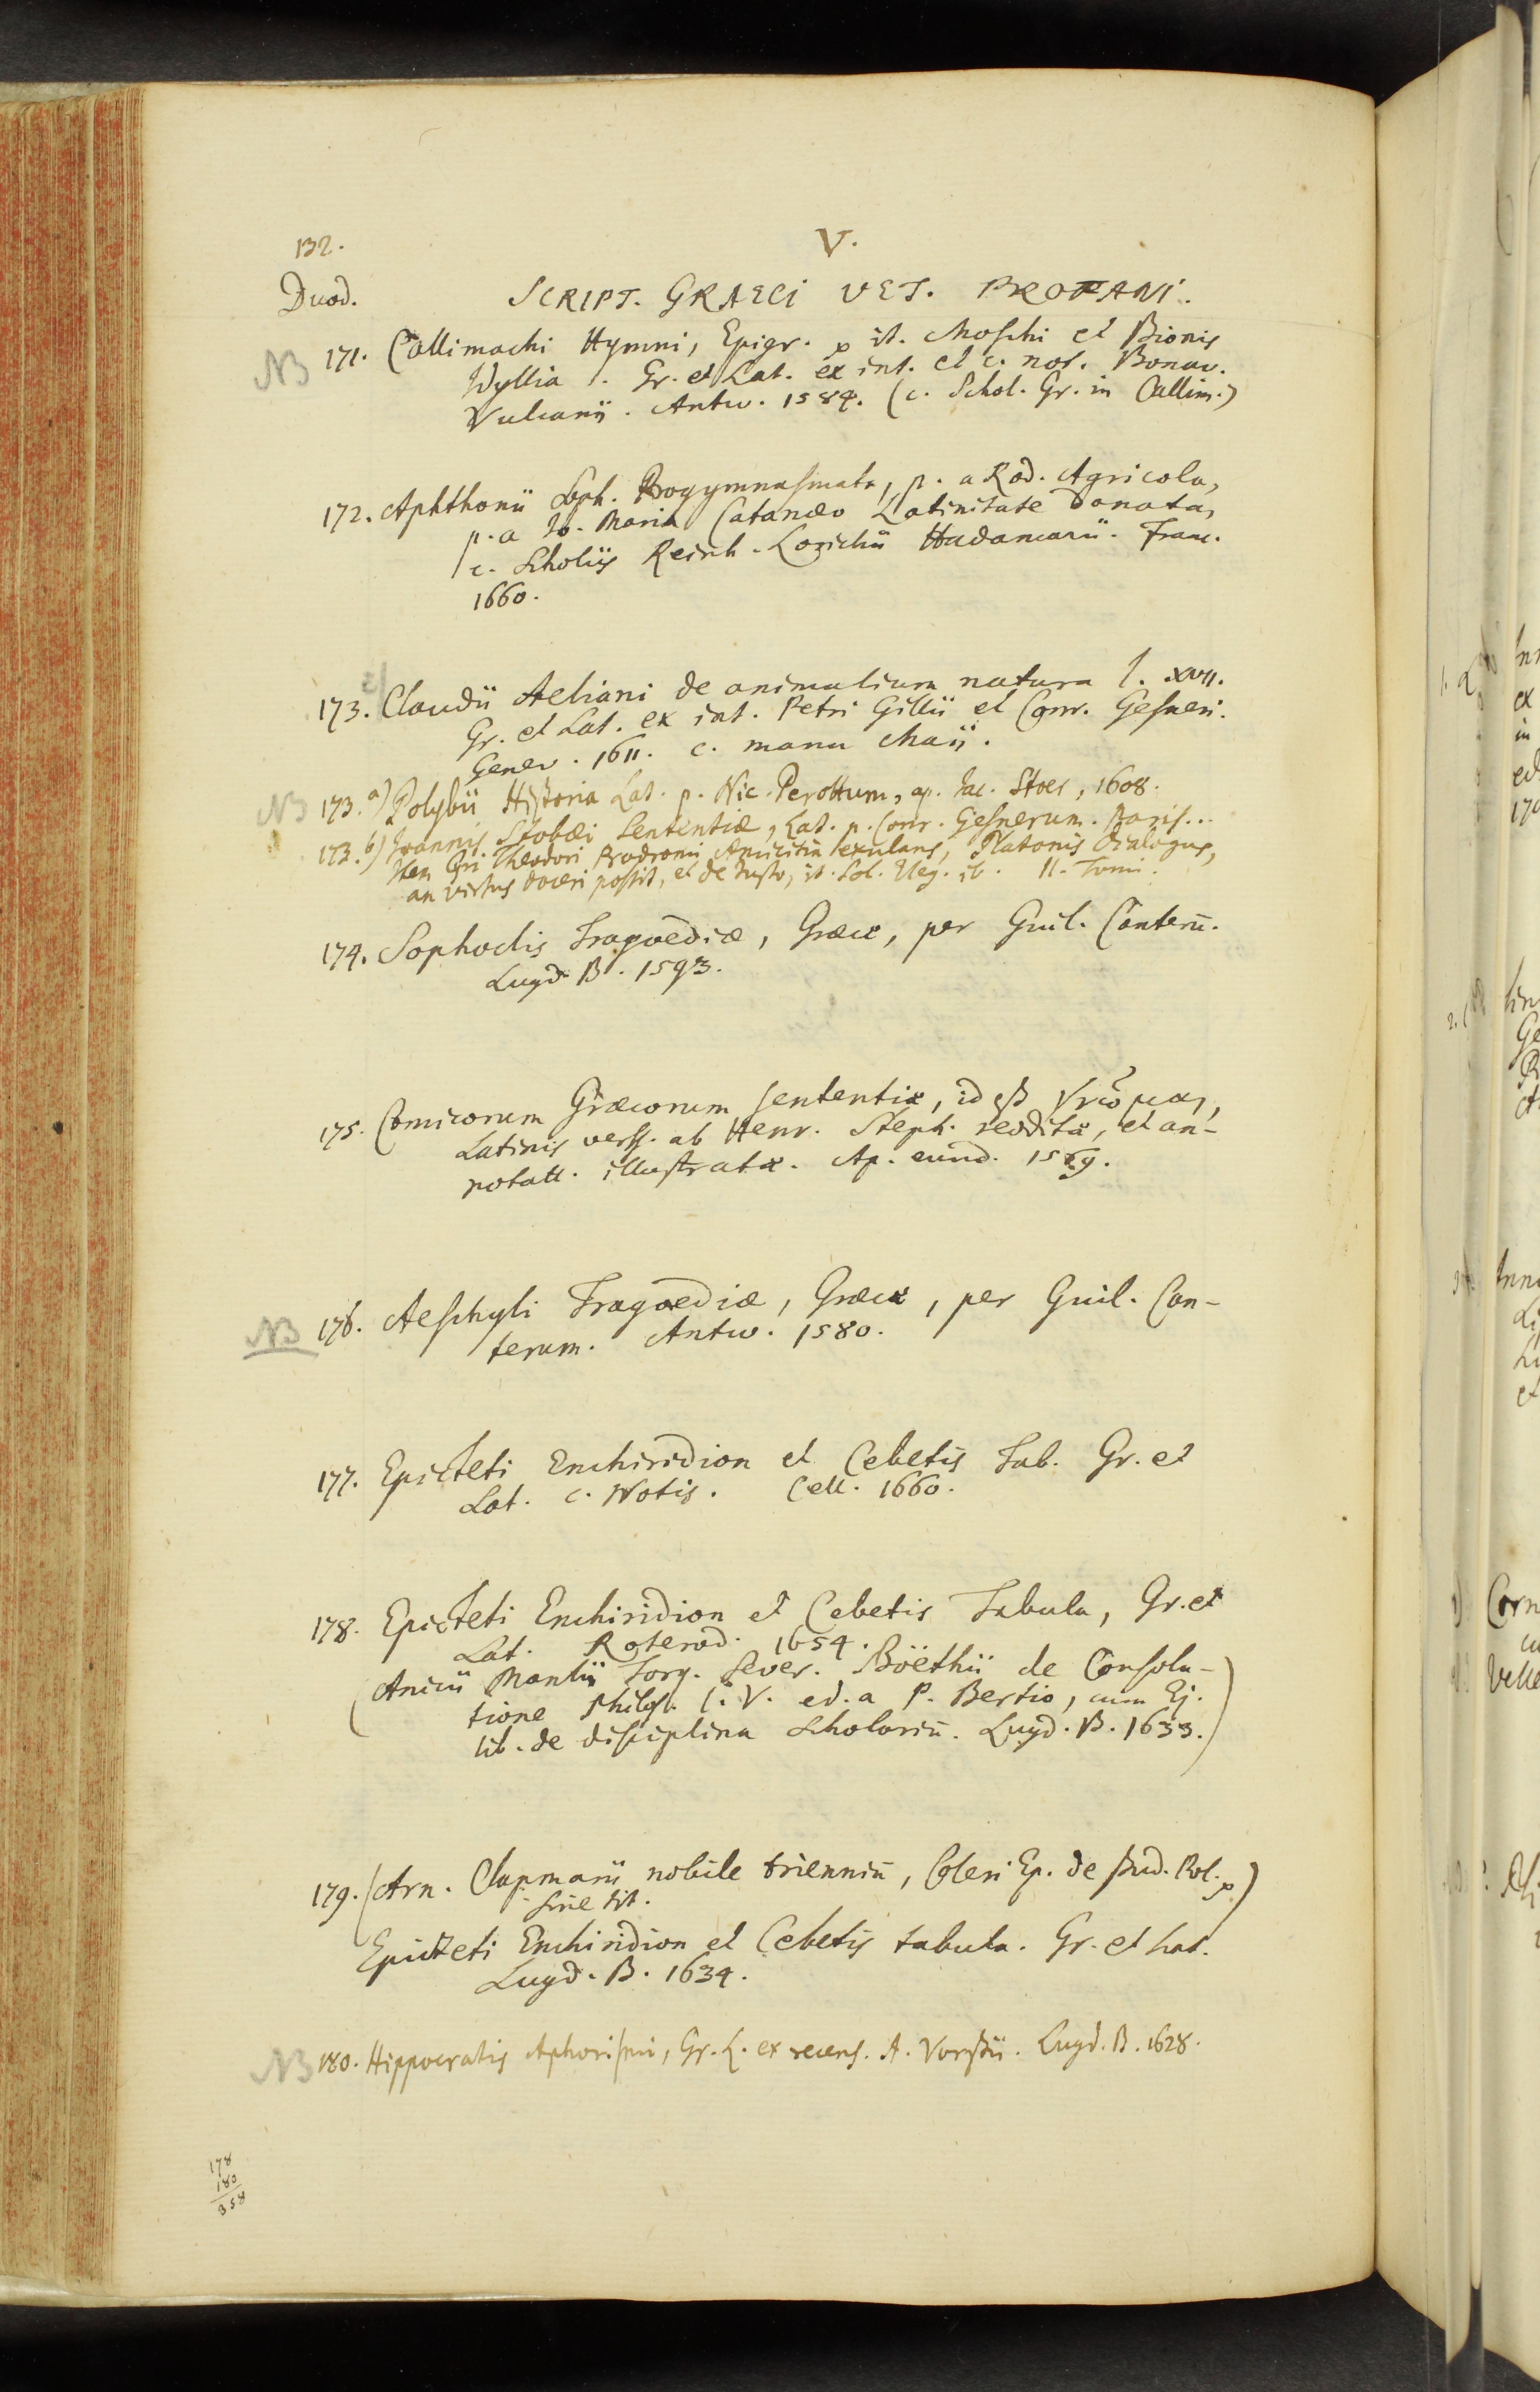 132.
V.
Duod.
SCRIPT. GRAECI VET. PROFANI.
NB 171. Callimachi Hymni, Epigr. p it. Moschi et Bionis
Idyllia. Gr. et Lat. ex int. et c. not. Bonav.
Vulcanii. Antw. 1584. (c. Schol. Gr. in Callim.)
172. Aphthonii Soph. Progymnasmata, p. a Rod. Agricola,
p. a Jo. Maria Catanæo Latinitate donata,
c. Scholiis Reinh. Lorichii Hadamarii. Franc.
1660.
173. Claudii Aeliani de animalium natura l. XVII.
Gr. et Lat. ex int. Petri Gillii et Conr. Gesneri.
Genev. 1611. c. manu Maii.
NB 173.a) Polybii Historia Lat. p. Nic. Perottum, ap. Jac. Stoer, 1608.
173.b) Joannis Stobæi Sententiæ, Lat. p. Conr. Gesnerum. Paris...
Item Cyri Theodori Prodromi Amicitia exulans, Platonis dialogus,
an virtus doceri possit, et de Justo, it. Sol. Eleg. ib. II. Tomi.
174. Sophoclis Tragoediæ, Græce, per Guil. Canterū.
Lugd. B. 1593.
175. Comicorum Græcorum sententiæ, id est γνῶμαι,
Latinis verss. ab Henr. Steph. redditæ, et an-
notatt. illustratæ. Ap. eund. 1569.
NB 176. Aeschyli Tragoediæ, Græce, per Guil. Can-
terum. Antw. 1580.
177. Epicteti Enchiridion et Cebetis Tab. Gr. et
Lat. c. Notis. Cell. 1660.
178. Epicteti Enchiridion et Cebetis Tabula, Gr. et
Lat. Roterod. 1654.
(Anicii Manlii Torq. Sever. Boëthii de Consola-
tione Philos. l. V. ed. a P. Bertio, cum Ej.
lib. de disciplina Scholariū. Lugd. B. 1633.)
179. (Arn. Clapmarii nobile trienniū, Coleri Ep. de stud. Pol. p)
sine tit.
Epicteti Enchiridion et Cebetis tabula. Gr. et Lat.
Lugd. B. 1634.
NB 180. Hippocratis Aphorismi, Gr. L. ex recens. A. Vorstii. Lugd. B. 1628.
178
180
358